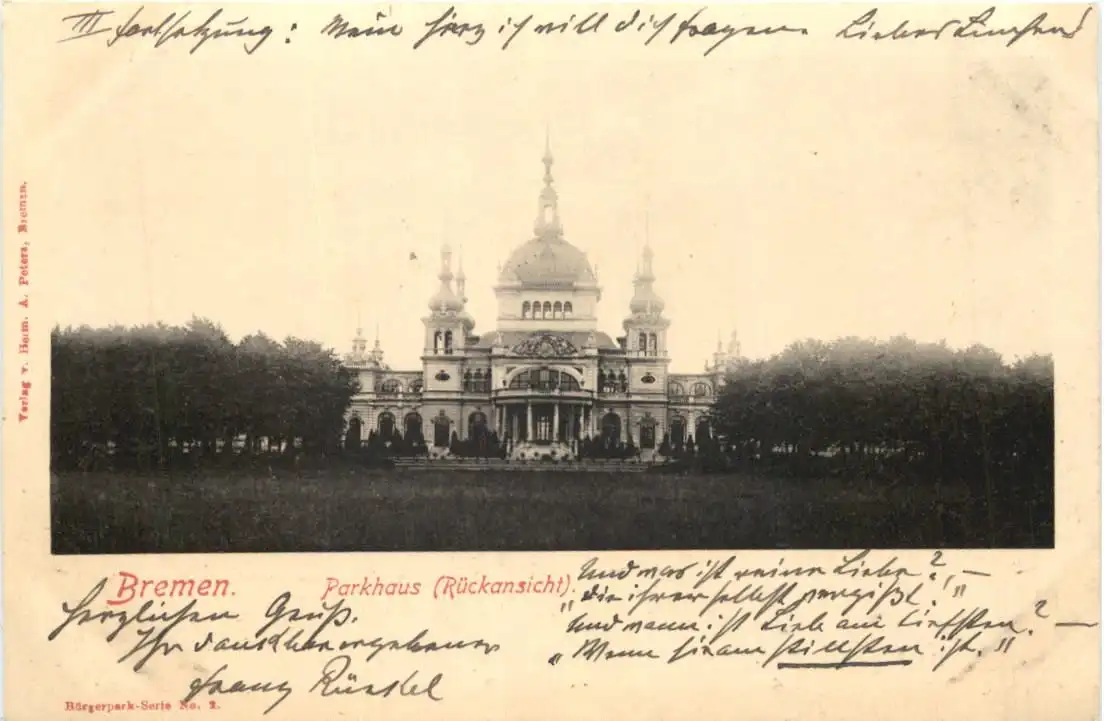 III Fortsetzung: Mein Herz ich will dich fragen. Liebes
Verlag v. Herm. A. Peters, Bremen.
Bremen. Parkhaus (Rückansicht).
Herzlichen Gruß.
Ihr dankbar ergebener
Franz
Und was ist reine Liebe? —
„die ihrer selbst vergißt."
Und wann ist Lieb am tiefsten? —
„Wenn sie am stillsten ist."
Bürgerpark-Serie No. 2.